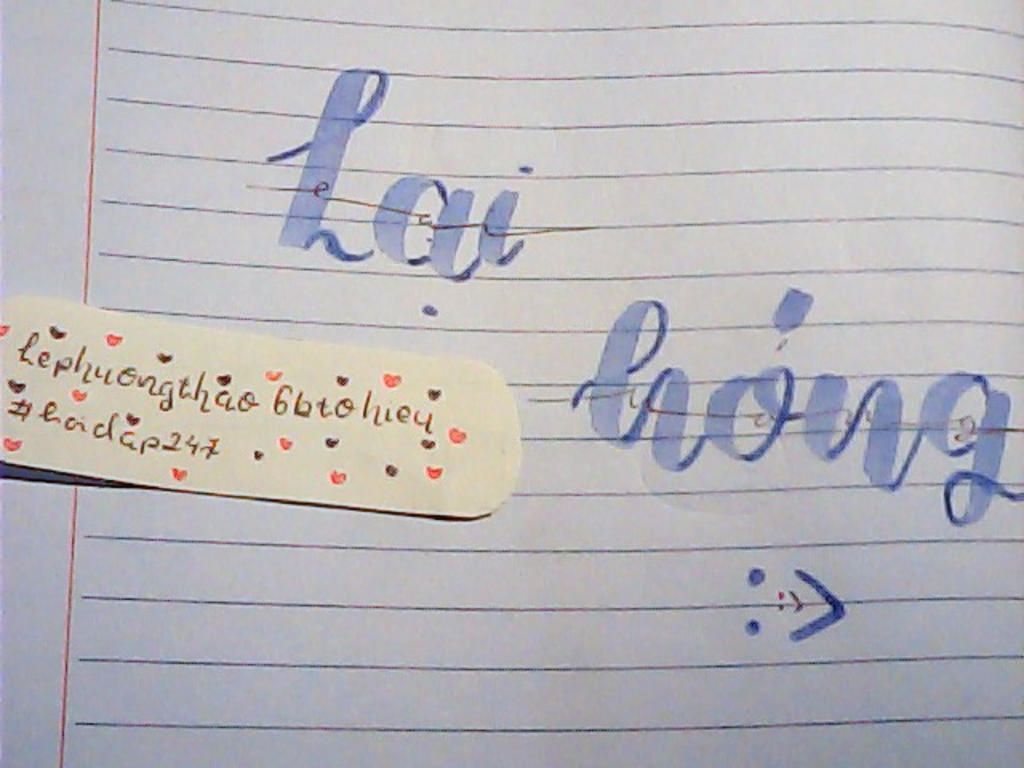 Lại
hỏng
:>
:>
lephuongthao 6btohieu
#hoidap247